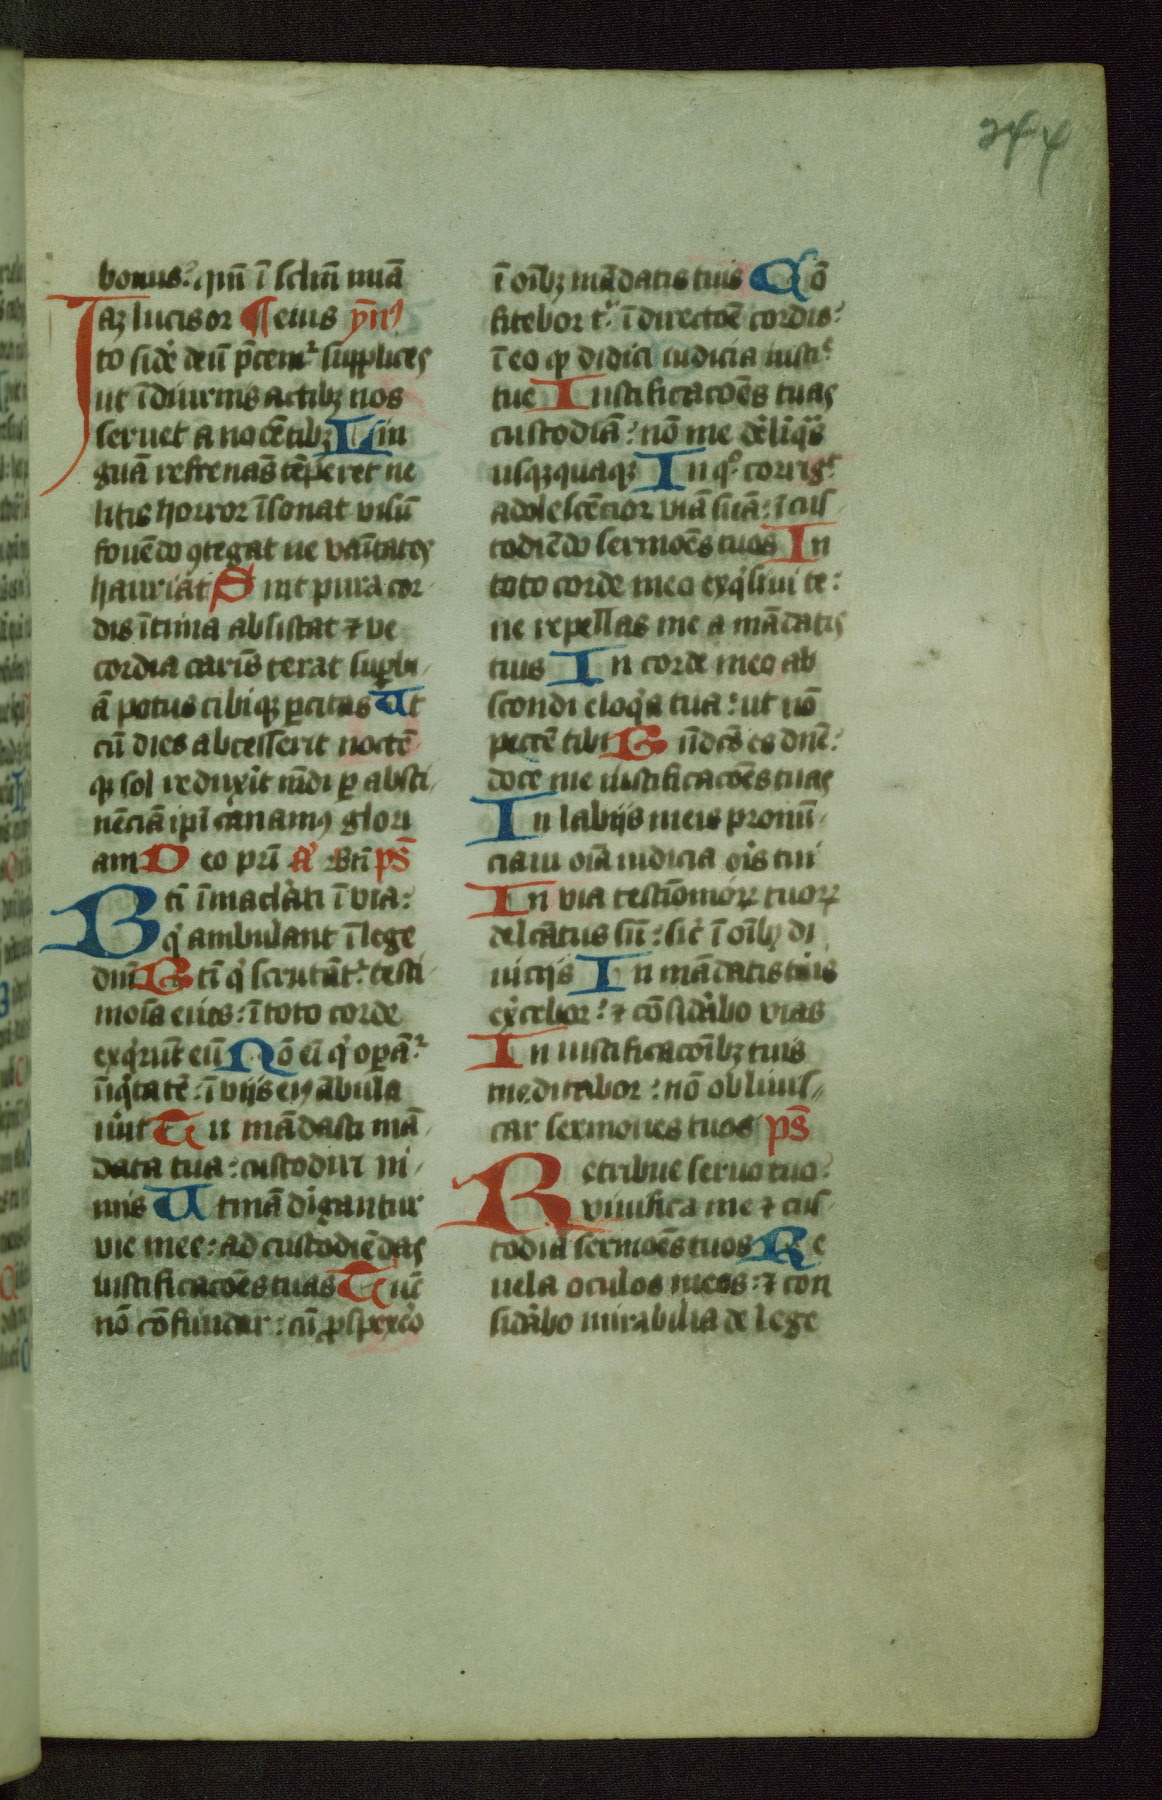 244
bonus: qm̄ ī sclm̄ mīa
Iaz lucis or ¶ eius ym̄9
to sid'e deū p̄cem2 supplices
ut ī diurnis actibꝫ nos
seruet a nocētibꝫ Lin
guā refrenās tēperet ne
litis horror īsonat visū
fouēdo ꝯtegat ne vanitates
hauriat Sint pura cor
dis ītima absistat ⁊ ve
cordia carnis terat supbi
ā potus cibiqꝫ ꝑcitas Ut
cū dies abcesserit noctē
qꝫ sol reduxit mūdi ꝑ absti
nēciā ipī canamꝰ glori
am Deo pri a' Bti ps̄
Bti īmaclati ī via:
q' ambulant ī lege
dnī Bti q' scrutāt2 testi
monīa eius: ī toto corde
exq'rūt eū Nō eī q' oꝑāt2
īiq'tatē: ī viis eiꝰ ābula
u'ūt Tu mādasti mā
data tua: custodiri ni
mis Utinā dirigantur
vie mee: ad custodiēdas
iustificacōes tuas Tūc
nō cōfundar: cū ꝓspexero
ī oībꝫ mādatis tuis Cō
fitebor t': ī directōe cordis:
ī eo qꝫ didici iudicia iusti
tue Iustificacōes tuas
custodiā: nō me derelīq's
usqꝫquaqꝫ In qo corrigt
adolescēcior viā suā: ī cus
todiēdo sermōes tuos In
toto corde meo exq'siui te:
ne repellas me a mādatis
tuis In corde meo ab
scondi eloq'a tua: ut nō
peccē tibi Bn̄dcs es dnē:
doce me iustificacōes tuas
In labijs meis pronū
ciaui oīa iudicia oris tui
In via testimonioꝝ tuoꝝ
delcātus sū: sic' ī oībꝫ di
uicijs In mādatis tuis
ex'cebor: ⁊ cōsid'abo vias
In iustificacōibꝫ tuis
meditabor: nō obliuis
car sermones tuos ps̄
Retribue seruo tuo:
viuifica me ⁊ cus
todiā sermōes tuos Re
uela oculos meos: ⁊ con
sid'abo mirabilia de lege